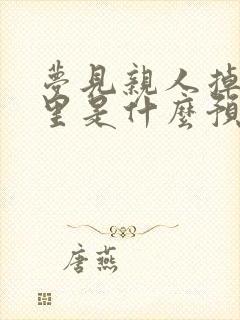 夢見親人掉
里是什麼預
唐燕